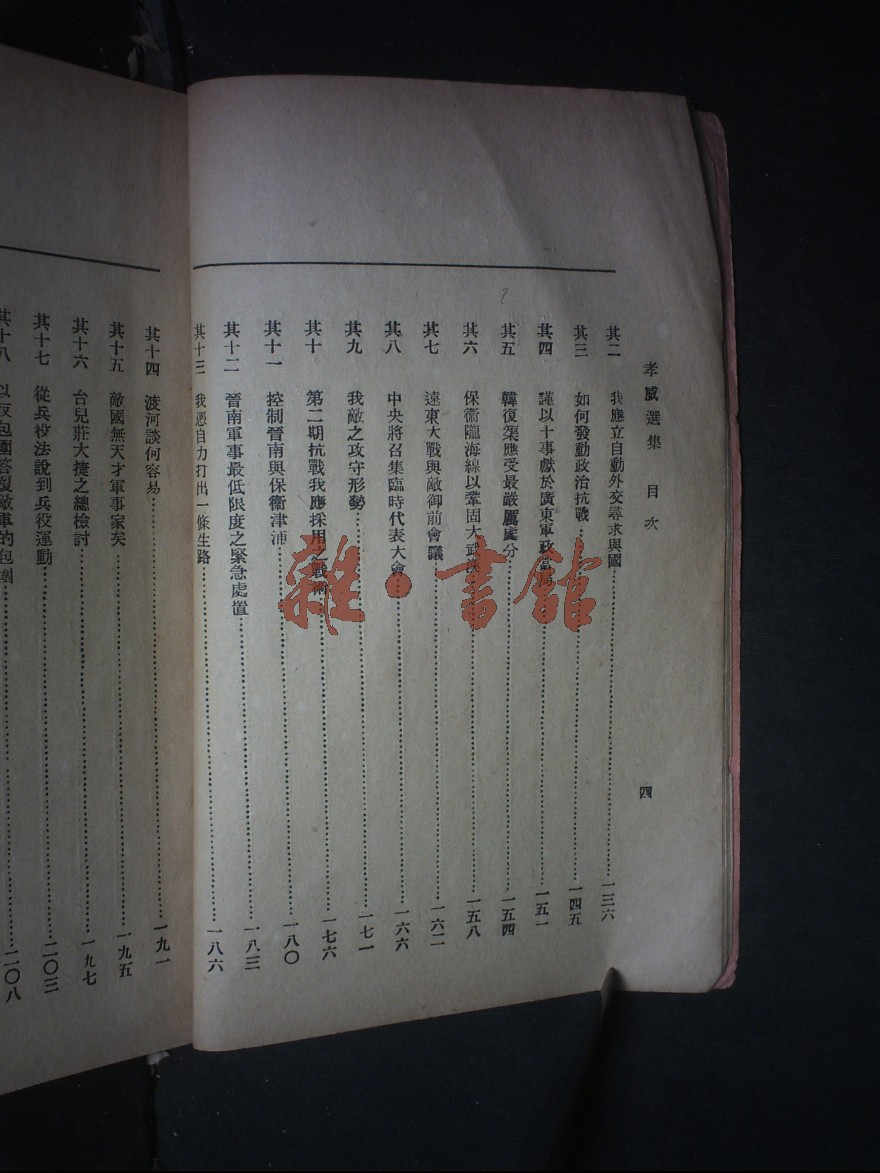 孝威選集 目次 四
其二 我應立自動外交尋求與國 一三六
其三 如何發動政治抗戰 一四五
其四 謹以十事獻於廣東軍政當局 一五一
其五 韓復榘應受最嚴厲處分 一五四
其六 保衞隴海線以鞏固大武漢 一五八
其七 遠東大戰與敵御前會議 一六二
其八 中央將召集臨時代表大會 一六六
其九 我敵之攻守形勢 一七一
其十 第二期抗戰我應採用之戰術 一七六
其十一 控制晉南與保衞津浦 一八〇
其十二 晉南軍事最低限度之緊急處置 一八三
其十三 我憑自力打出一條生路 一八六
其十四 渡河談何容易 一九一
其十五 敵國無天才軍事家矣 一九五
其十六 台兒莊大捷之總檢討 一九七
其十七 從兵役法說到兵役運動 二〇三
其十八 以反包圍答復敵軍的包圍 二〇八
雜·書館